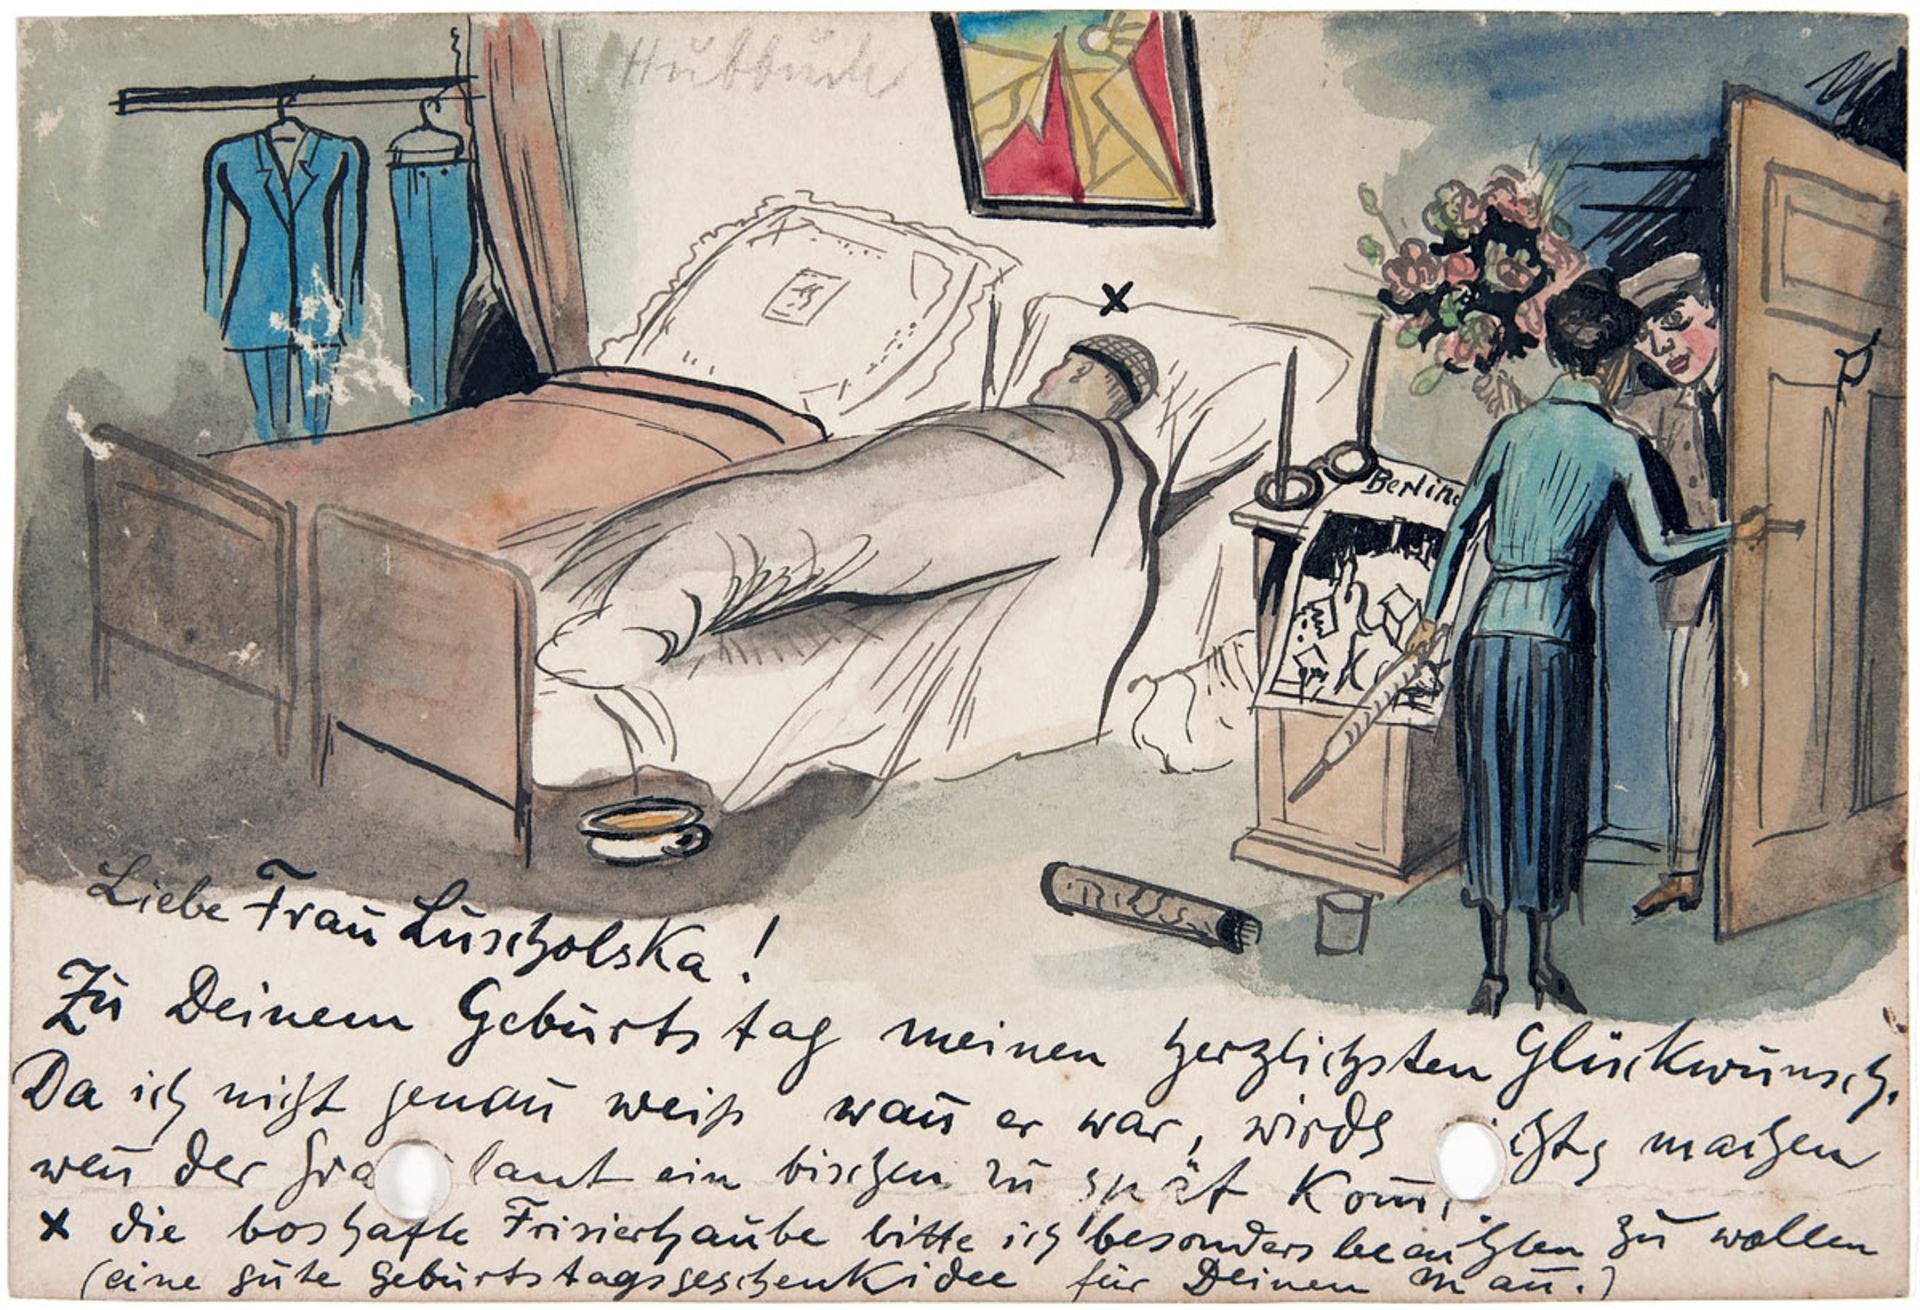 Hubbuch
Berline
Liebe Frau Luscholska!
Zu Deinem Geburtstag meinen herzlichsten Glückwunsch.
Da ich nicht genau weiß wan̄ er war, wirds ichts machen
wen̄ der Gra lant ein bischen zu spät kom̄
x die boshafte Frisierhaube bitte ich besonders beachten zu wollen
(eine gute Geburtstagsgeschenkidee für Deinen Man̄.)